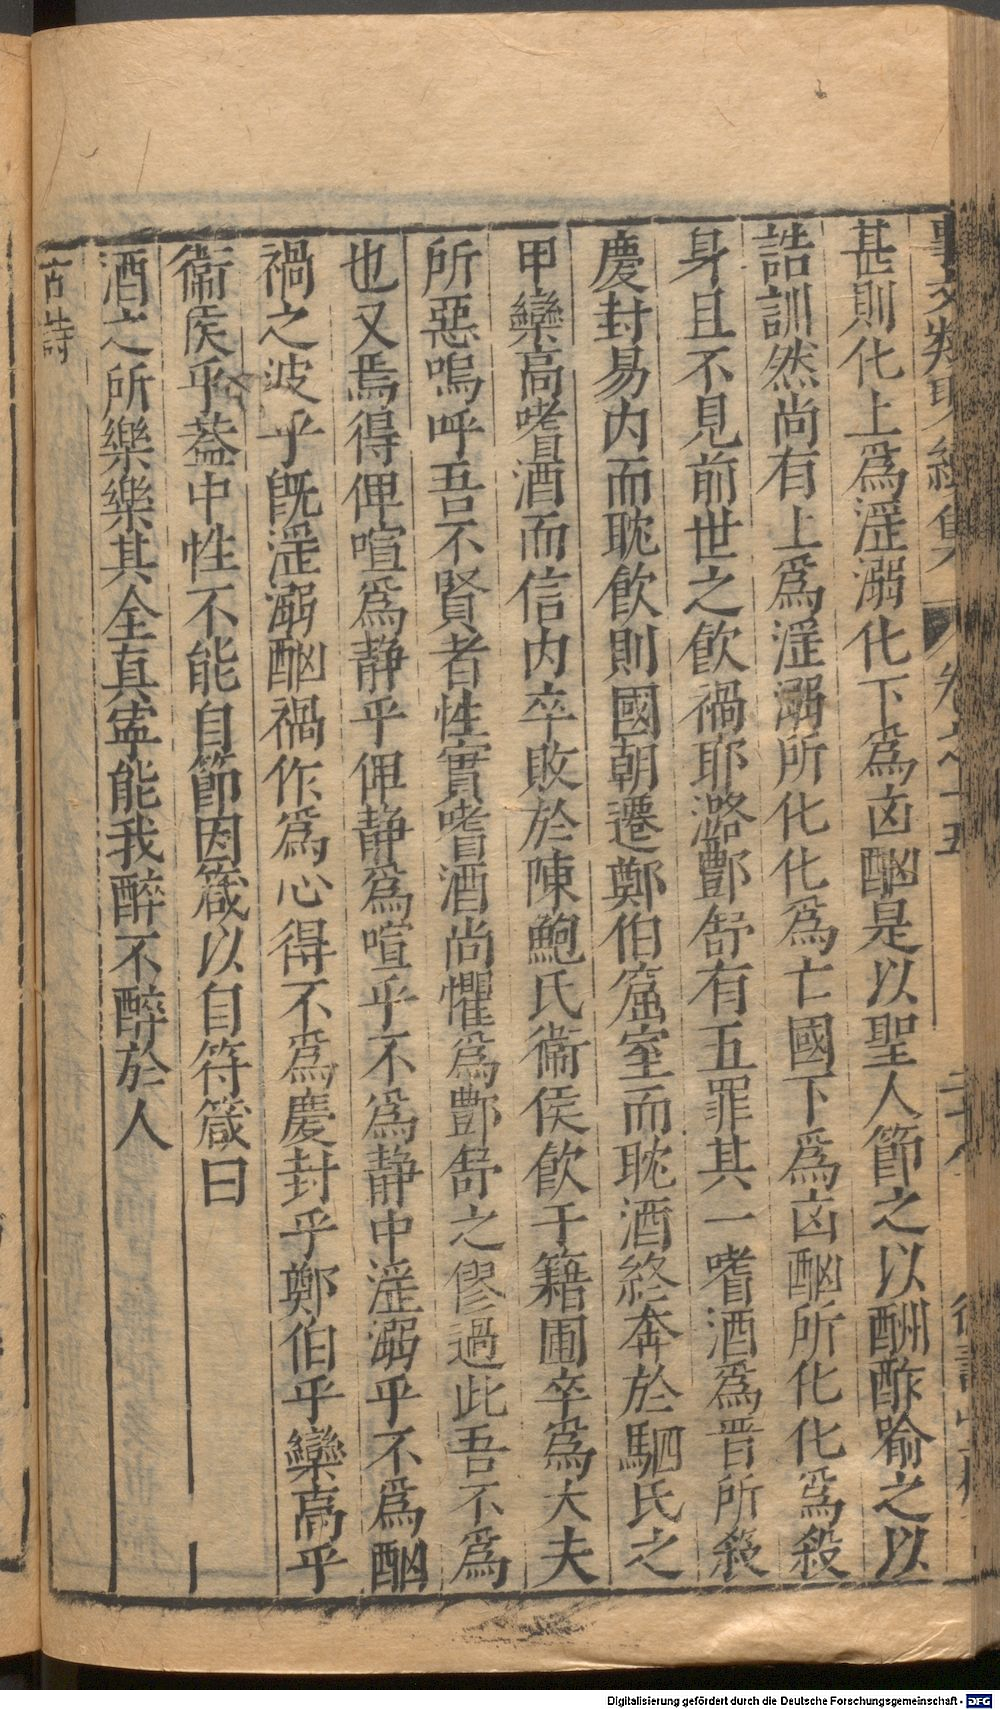 甚則化上爲淫溺化下爲凶酗是以聖人節之以酬酢諭之以
誥訓然尚有上爲淫溺所化化爲亡國下爲凶酗所化化爲殺
身且不見前世之飲禍耶潞酆舒有五罪其一嗜酒爲晉所殺
慶封易內而耽飲則國朝遷鄭伯窟室而耽酒終奔於駟氏之
甲欒高嗜酒而信內卒敗於陳鮑氏衞侯飲于籍圃卒爲大夫
所惡嗚呼吾不賢者性實嗜酒尚懼爲酆舒之僇過此吾不爲
也又焉得俾喧爲静乎俾静爲喧乎不爲静中淫溺乎不爲酗
禍之波乎既淫溺酗禍作爲心得不爲慶封乎鄭伯乎欒高乎
衞侯乎蓋中性不能自節因箴以自符箴曰
酒之所樂樂其全真寍能我醉不醉於人
古詩
卷之十五
Digitalisierung gefördert durch die Deutsche Forschungsgemeinschaft - DFG